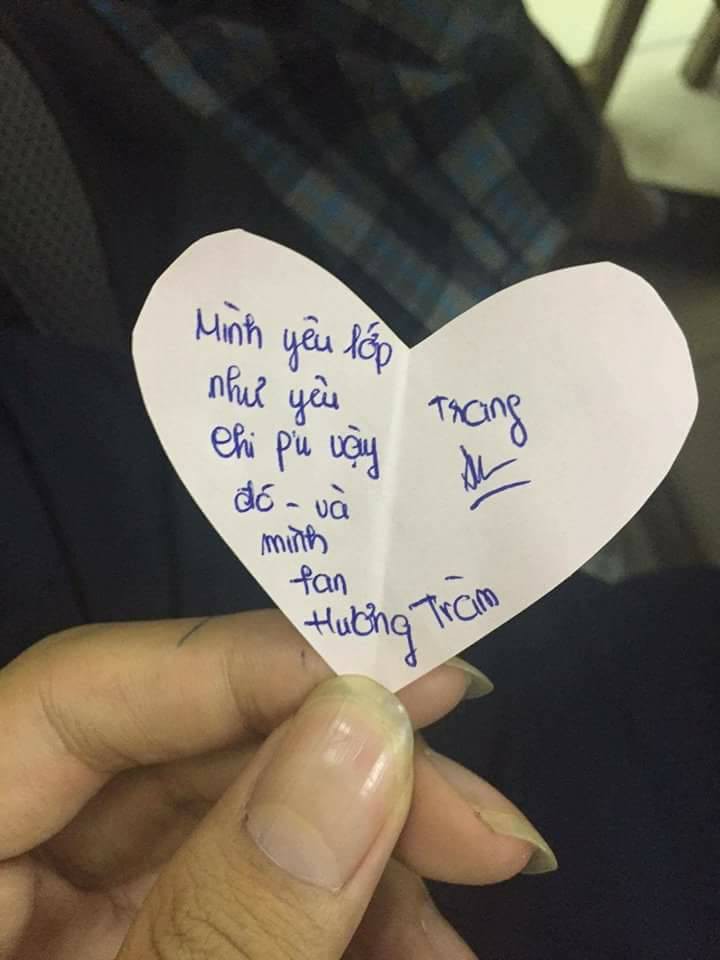 Mình yêu lớp
như yêu
Chi pu vậy
đó - và
mình
fan
Hương Tràm
Trang